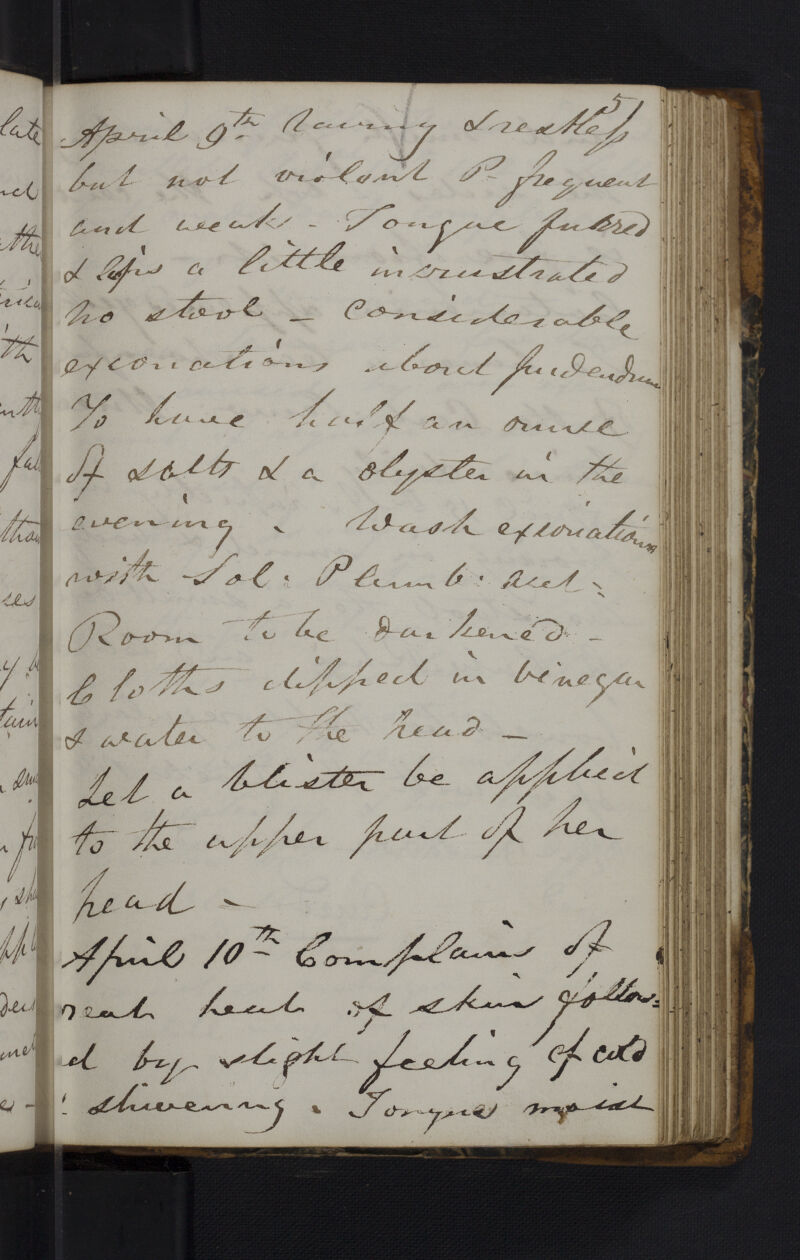 5
April 9th Raving & restless
but not violent P. frequent
and weak - Tongue furred
& lips a little incrustrated
no stool - Considerable
excoriations about pudendum
To have half an ounce
of salts & a clyster in the
evening. Wash excoriations
with Sol: Plumb: Acet:
Room to be darkened -
Cloths dipped in vinegar
& water to the head -
Let a blister be applied
to the upper part of her
head -
April 10th Complains of
reat heat of skin follow=
d by slight feeling of cold
: shivering. Tongue moist
late
the
th
fal
than
ses
tain